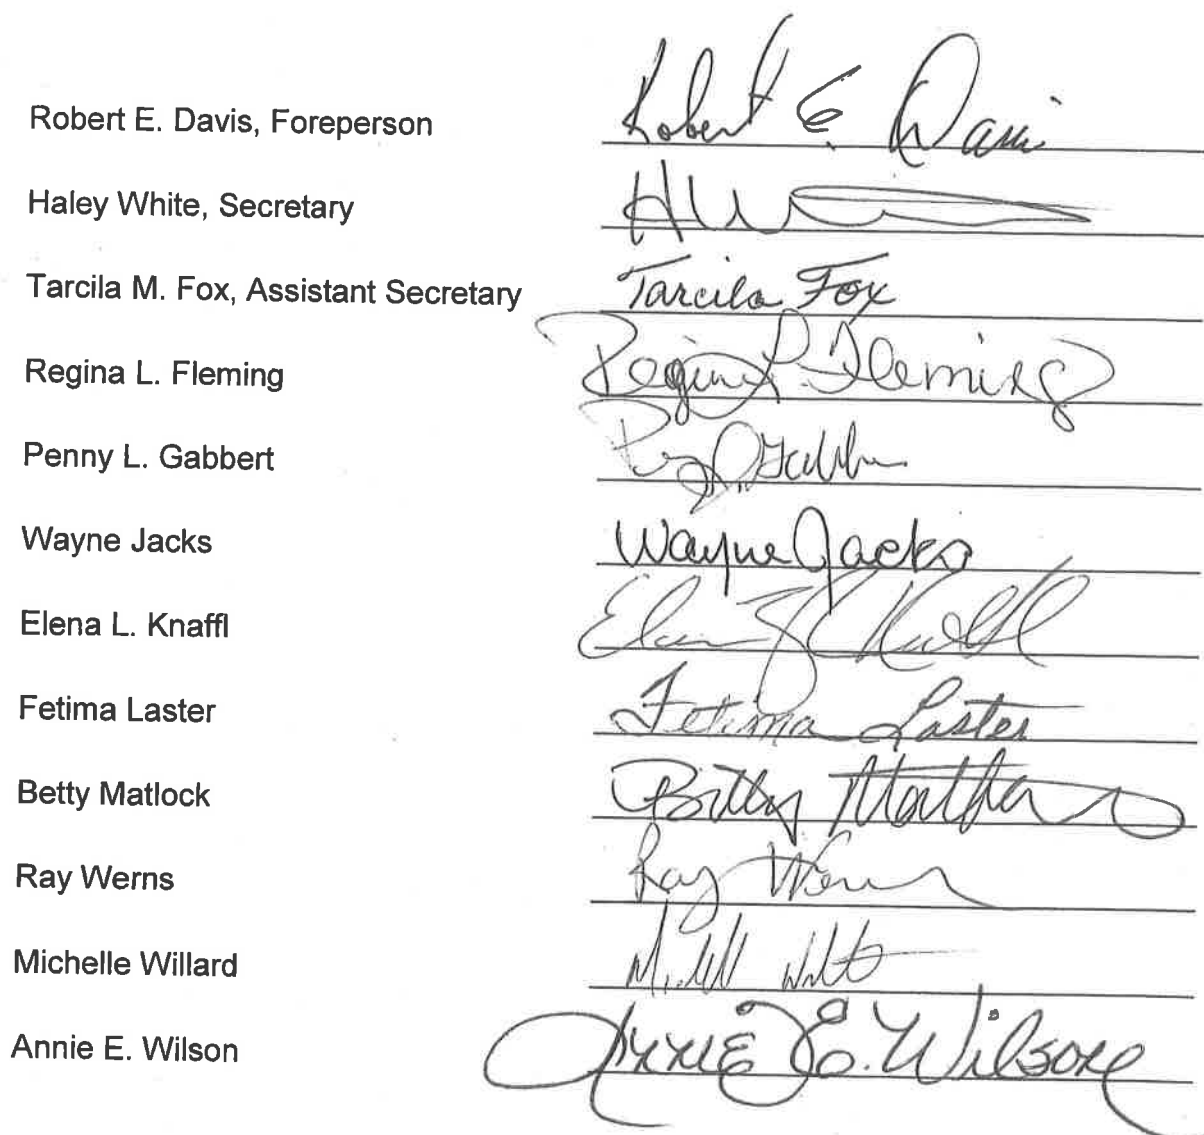 Robert E. Davis, Foreperson Robert E. Davis
Haley White, Secretary HW
Tarcila M. Fox, Assistant Secretary Tarcila Fox
Regina L. Fleming Regina L. Fleming
Penny L. Gabbert
Wayne Jacks Wayne Jacks
Elena L. Knaffl
Fetima Laster Fetima Laster
Betty Matlock Betty
Ray Werns Ray
Michelle Willard
Annie E. Wilson Annie E. Wilson